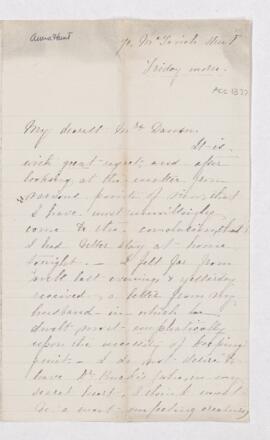 Anna Hunt
70, McTavish Street
Friday morn.
DEC 1877
My dearest Mrs Dawson
It is
with great regret, and after
looking at the matter from
various points of view, that
I have most unwillingly
come to the conclusion that
I had better stay at home
tonight. – I felt far from
well last evening & yesterday
received a letter from my
husband in which he
dwelt most emphatically
upon the necessity of keeping
quiet. – I do not desire to
leave
secret
is a most